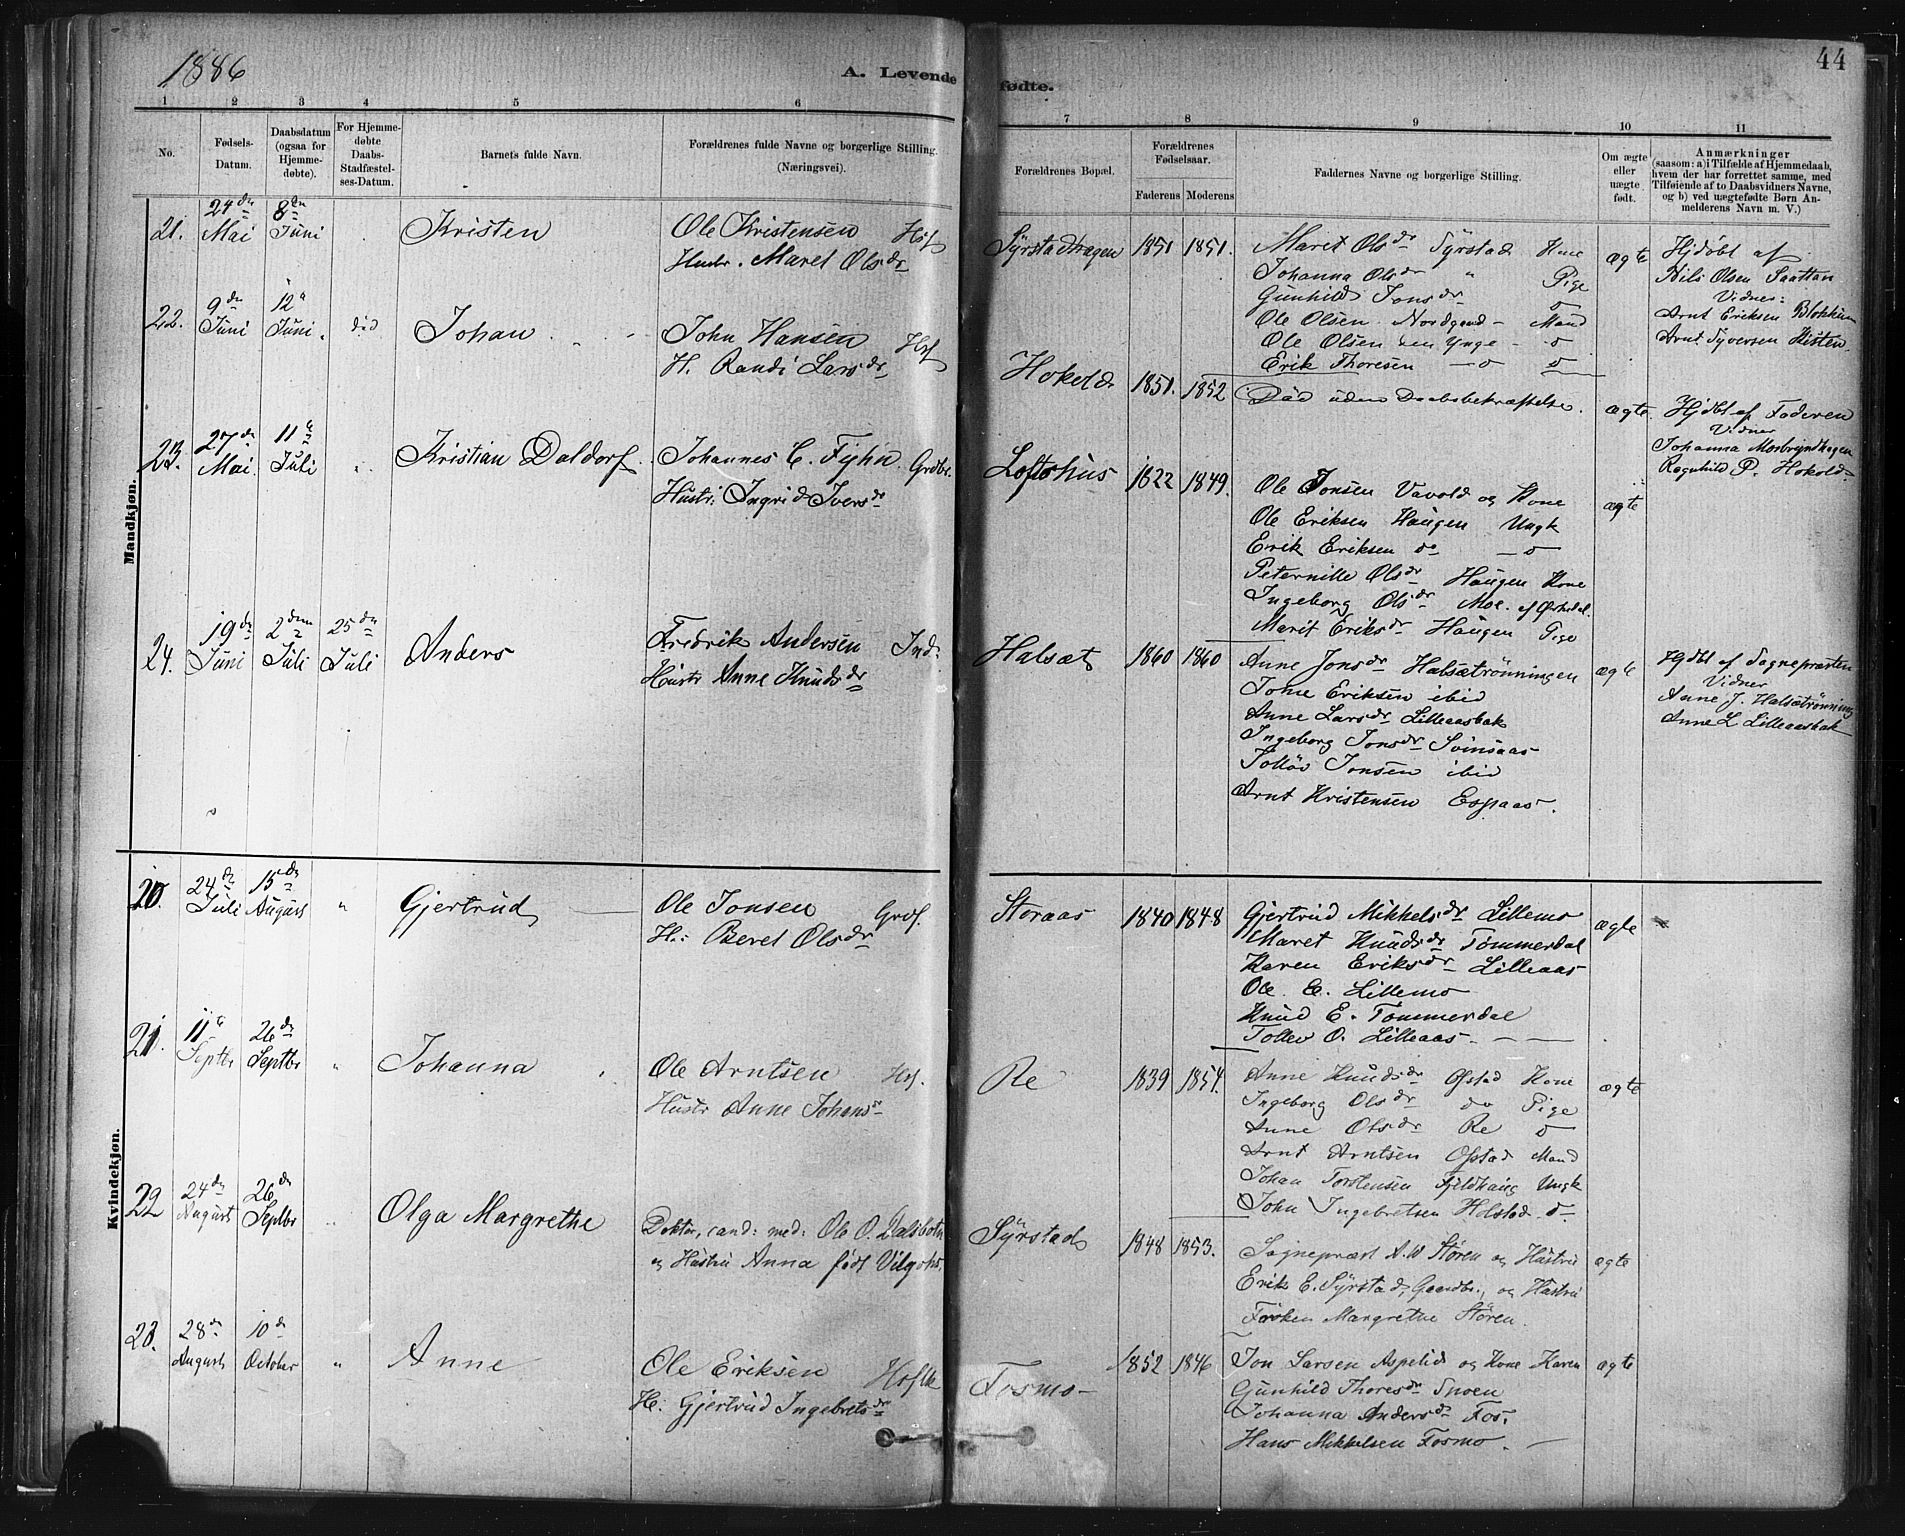 1886
A. Levende
fødte.
44
1 2 3 4 5 6 7 8 9 10 11
No.
Fødsels-Datum.
Daabsdatum (ogsaa for Hjemme-døbte).
For Hjemme-døbte Daabs-Stadfæstel-ses-Datum.
Barnets fulde Navn.
Forældrenes fulde Navne og borgerlige Stilling.
(Næringsvei).
Forældrenes Bopæl.
Forældrenes Fødselsaar.
Faderens Moderens
Faddernes Navne og borgerlige Stilling.
Om ægte eller uægte født.
Anmærkninger
(saasom: a) i Tilfælde af Hjemmedaab,
hvem der har forrettet samme, med
Tilføiende af to Daabsvidners Navne,
og b) ved uægtefødte Børn An-
melderens Navn m. V.)
Mandkjøn.
21. 24de Mai 8de Juni Kristen
Ole Kristensen Hsf
Hustr. Maret Olsdr
Syrstadhagen 1851 1851.
Maret Olsdr Syrstad Kone
Johanna Olsdr " Pige
Gunhild Jonsdr o
Ole Olsen Nordgard - Mand
Ole Olsen den Ynge - o
Erik Thoresen - o o
ægte
Hjdöbt af
Nils Olsen Saattan
Vidner:
Arnt Eriksen Blokkum
Arnt Syversen Histen
22. 9de Juni 12te Juni död Johan
John Hansen Hsf
H. Randi Larsdr
Hokeld 1851. 1852
Död uden Daabsbekræftelse.
ægte.
Hjdbt af Faderen
Vidner
Johanna Mosbryndhagen
Ragnhild P. Hokold
23. 27de Mai. 11te Juli Kristian Daldorf
Johannes C. Fyhn. Grdbr.
Hustr: Ingrid Iversdr
Loftshus 1822 1849.
Ole Jonsen Vavold og Kone
Ole Eriksen Haugen Ungk
Erik Eriksen do - o
Peternille Olsdr Haugen Kone
Ingeborg Olsdr Moe. af Orkedal
Marit Eriksdr Haugen Pige
ægte
24. 19de Juni 2den Juli 25de Juli Anders
Fredrik Andersen Ind.
Hustr Anne Knudsdr
Halsæt 1860 1860
Anne Jonsdr Halsætrönningen
John Eriksen ibid
Anne Larsdr Lilleaasbak
Ingeborg Jonsdr Svinsaas
Tollöv Jonsen ibid
Arnt Kristensen Espaas.
ægte
Hjdbt af Sognepræsten
Vidner
Anne J. Halsætrönning
Anne L Lilleaasbak
Kvindekjøn.
20. 24de Juli 15de August " Gjertrud
Ole Jonsen Grdf.
H: Beret Olsdr
Storaas 1840 1848
Gjertrud Mikkelsdr Lillemo
Maret Knudsdr Tömmerdal
Karen Eriksdr Lilleaas
Ole E. Lillemo
Knud E. Tömmerdal
Tollev O. Lilleaas.
ægte
21. 11te Septbr 26de Septbr " Johanna
Ole Arntsen Hsf.
Hustr Anne Johansdr
Re 1839 1854.
Anne Knudsdr Ofstad Kone
Ingeborg Olsdr do Pige
Anne Olsdr Re o
Arnt Arntsen Ofstad Mand
Johan Torstensen Fjeldhaug Ungk
John Ingebretsen Holstad o.
ægte
22 24de August 26de Septbr Olga Margrethe
Doktor, cand: med: Ole O. Dalsboth
og Hustru Anna født
Syrstad 1848 1853.
Sognepræst A. W Stören og Hustru
Erik E. Syrstad, Gaardbr., og Hustru
Fröken Margrethe Stören.
ægte
23. 28de August 10de October " Anne
Ole Eriksen
H: Gjertrud Ingebretsdr
Fosmo 1852 1846
Jon Larsen Aspelid og Kone Karen
Gunhild Thoresdr Snoen
Johanna Andersdr Fos.
Hans Mikkelsen Fosmo.
ægte